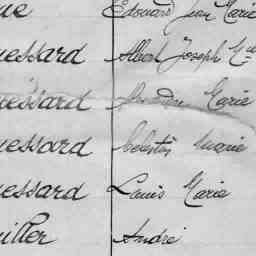 ue Edouard Jean Marie
essard Albert Joseph M
essard Marie
essard Célestin Marie
essard Louis Marie
iller André